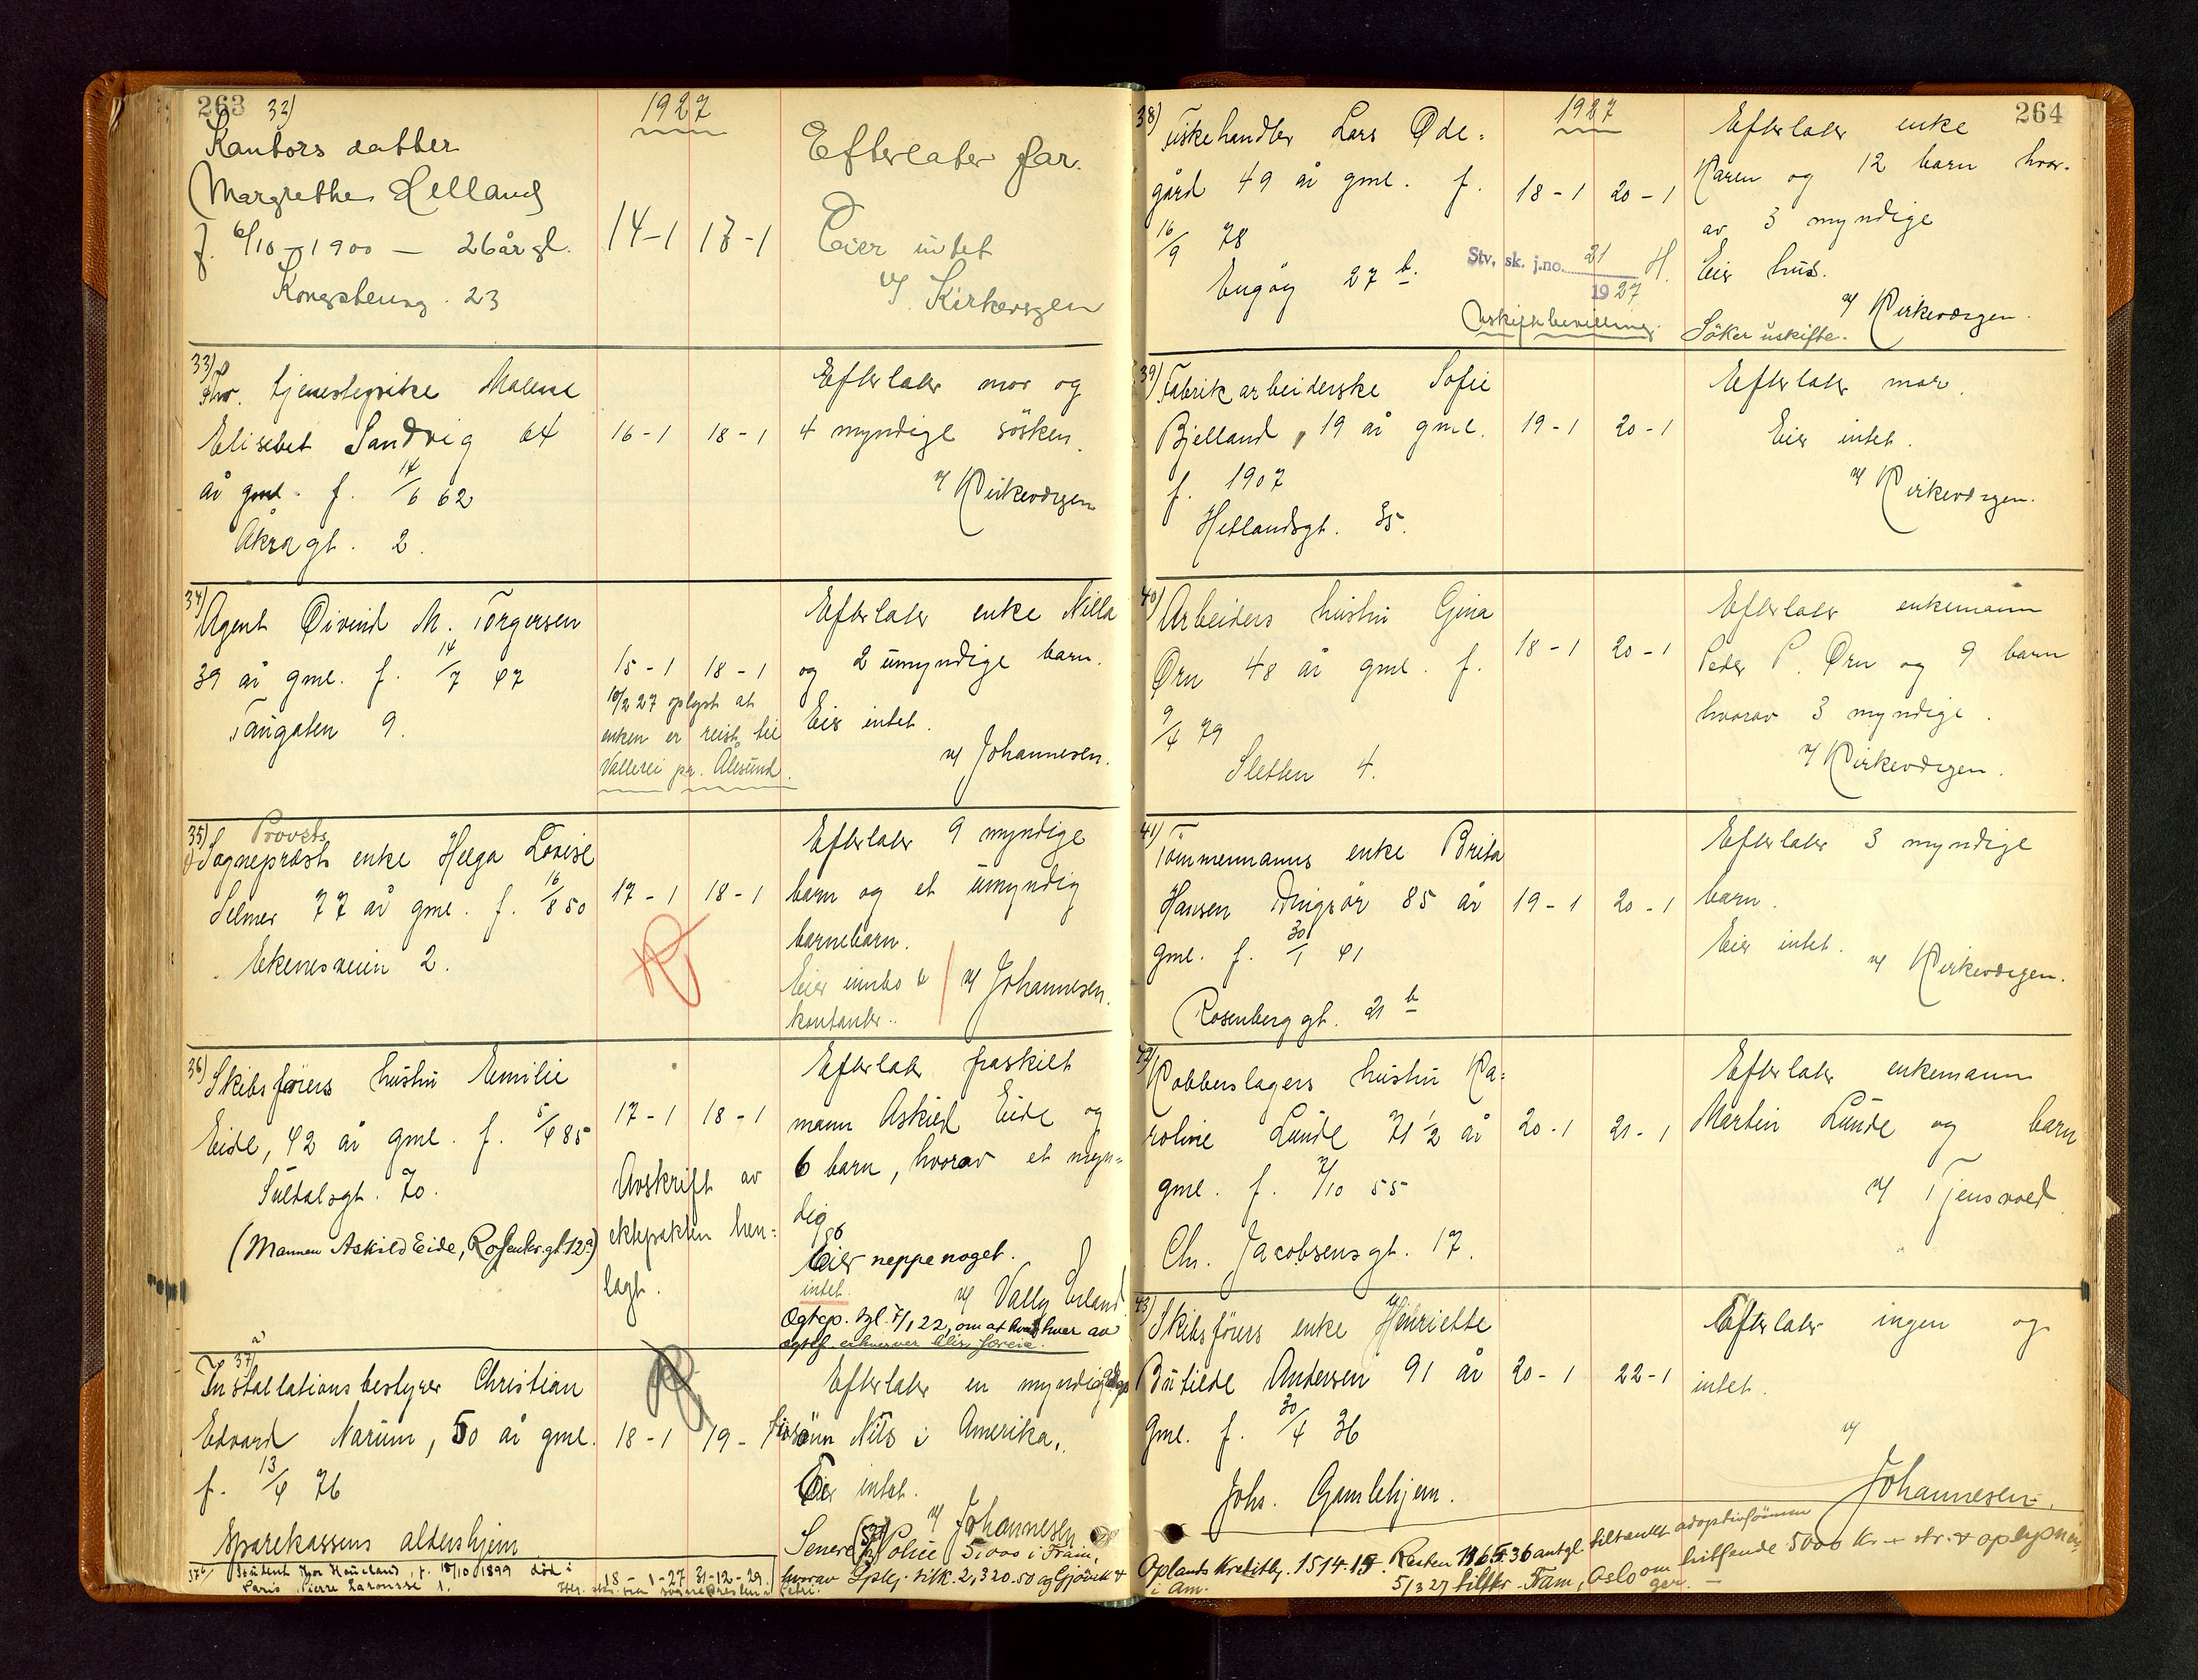 263 32)
1927
Kantors datter
Margrethe Helland
f. 6/10 - 1900 - 26 år gl.
Kongsteinsg. 23
14-1 18-1
Efterlater far.
Eier intet
v/ Kirkevergen
33)
Fhv. tjenestepike Malene
Elisebet Sandvig 64
år gml. f. 14/6 62
Åkragt. 2.
16-1 18-1
Efterlater mor og
4 myndige søsken.
v/ Kirkevergen
34)
Agent Øivind M. Torgersen
39 år gml. f. 14/7 87
Taugaten 9.
15-1 18-1
10/2 27 oplyst at
enken er reist til
Vallerei pr. Ålesund.
Efterlater enke Nilla
og 2 umyndige barn.
Eier intet.
v/ Johannesen.
35) Provsts
Sogneprests enke Helga Lovise
Selmer 77 år gml. f. 16/8 50
Ekenesveien 2.
17-1 18-1
Efterlater 9 myndige
barn og et umyndig
barnebarn.
Eier innbo &
kontanter.
v/ Johannesen.
36)
Skibsførers hustru Emilie
Eide, 42 år gml. f. 5/4 85
Suldalsgt. 70.
(Mannen Askild Eide, Rosenkr.gt. 12a)
17-1 18-1
Avskrift av
ektepakten hen-
lagt.
Efterlater fraskilt
mann Askild Eide og
6 barn, hvorav et myn-
dig
Eier neppe noget.
intet.
v/ Vally Erland
Egtep. tgl. 7/1 22, om at hvad hver av
egtef. erhverver blir særeie.
37) a
Installationsbestyrer Christian
Edvard Narum, 50 år gml.
f. 13/4 76
Sparekassens aldershjem
18-1 19-1
Efterlater en myndig adop-
tivsønn Nils i Amerika.
Eier intet.
v/ Johannesen
Senere Police 5.000 i Fram,
hvorav Spkj. 2,320.50 og Gjøvik &
37b Student Thor Haueland, f. 18/10 1899 død i
Paris, Pierre Larousse 1.
18-1-27 31-12-29.
38)
1927
264
Fiskehandler Lars Øde-
gård 49 år gml. f.
16/9 78
Engøy 27 b.
18-1 20-1
Stv. sk. j.no. 21 H.
1927
Uskiftebevilling.
Efterlater enke
Karen og 12 barn hvor-
av 3 myndige
Eier hus.
v/ Kirkevergen.
Søker uskifte.
39)
Fabrikarbeiderske Sofie
Bjelland, 19 år gml.
f. 1907
Hetlandsgt. 35.
19-1 20-1
Efterlater mor.
Eier intet.
v/ Kirkevergen.
40)
Arbeiders hustru Gina
Ørn 48 år gml. f.
9/4 79
Sletten 4.
18-1 20-1
Efterlater enkemann
Peder P. Ørn og 9 barn
hvorav 3 myndige.
v/ Kirkevergen.
41)
Tømmermanns enke Brita
Hansen Dingsør 85 år
gml. f. 30/1 41
Rosenberggt. 21 b
19-1 20-1
Efterlater 3 myndige
barn.
Eier intet.
v/ Kirkevergen.
42)
Kobberslagers hustru Ka-
roline Lunde 71 1/2 år
gml. f. 7/10 55
Chr. Jacobsens gt. 17.
20-1 21-1
Efterlater enkemann
Martin Lunde og barn
v/ Tjensvold
43)
Skibsførers enke Henriette
Butilde Andersen 91 år
gml. f. 30/4 36
Johs. Gamlehjem.
20-1 22-1
Efterlater ingen og
intet.
v/
Johannesen.
Oplands Kreditbk. 1514.15. Resten 1165.36 antgl. tilfaldt adoptivsønnen
i Am. 5/3 27 tilskr. Fram, Oslo om tilfhende 5000 Kr. & oplysnin-
ger.